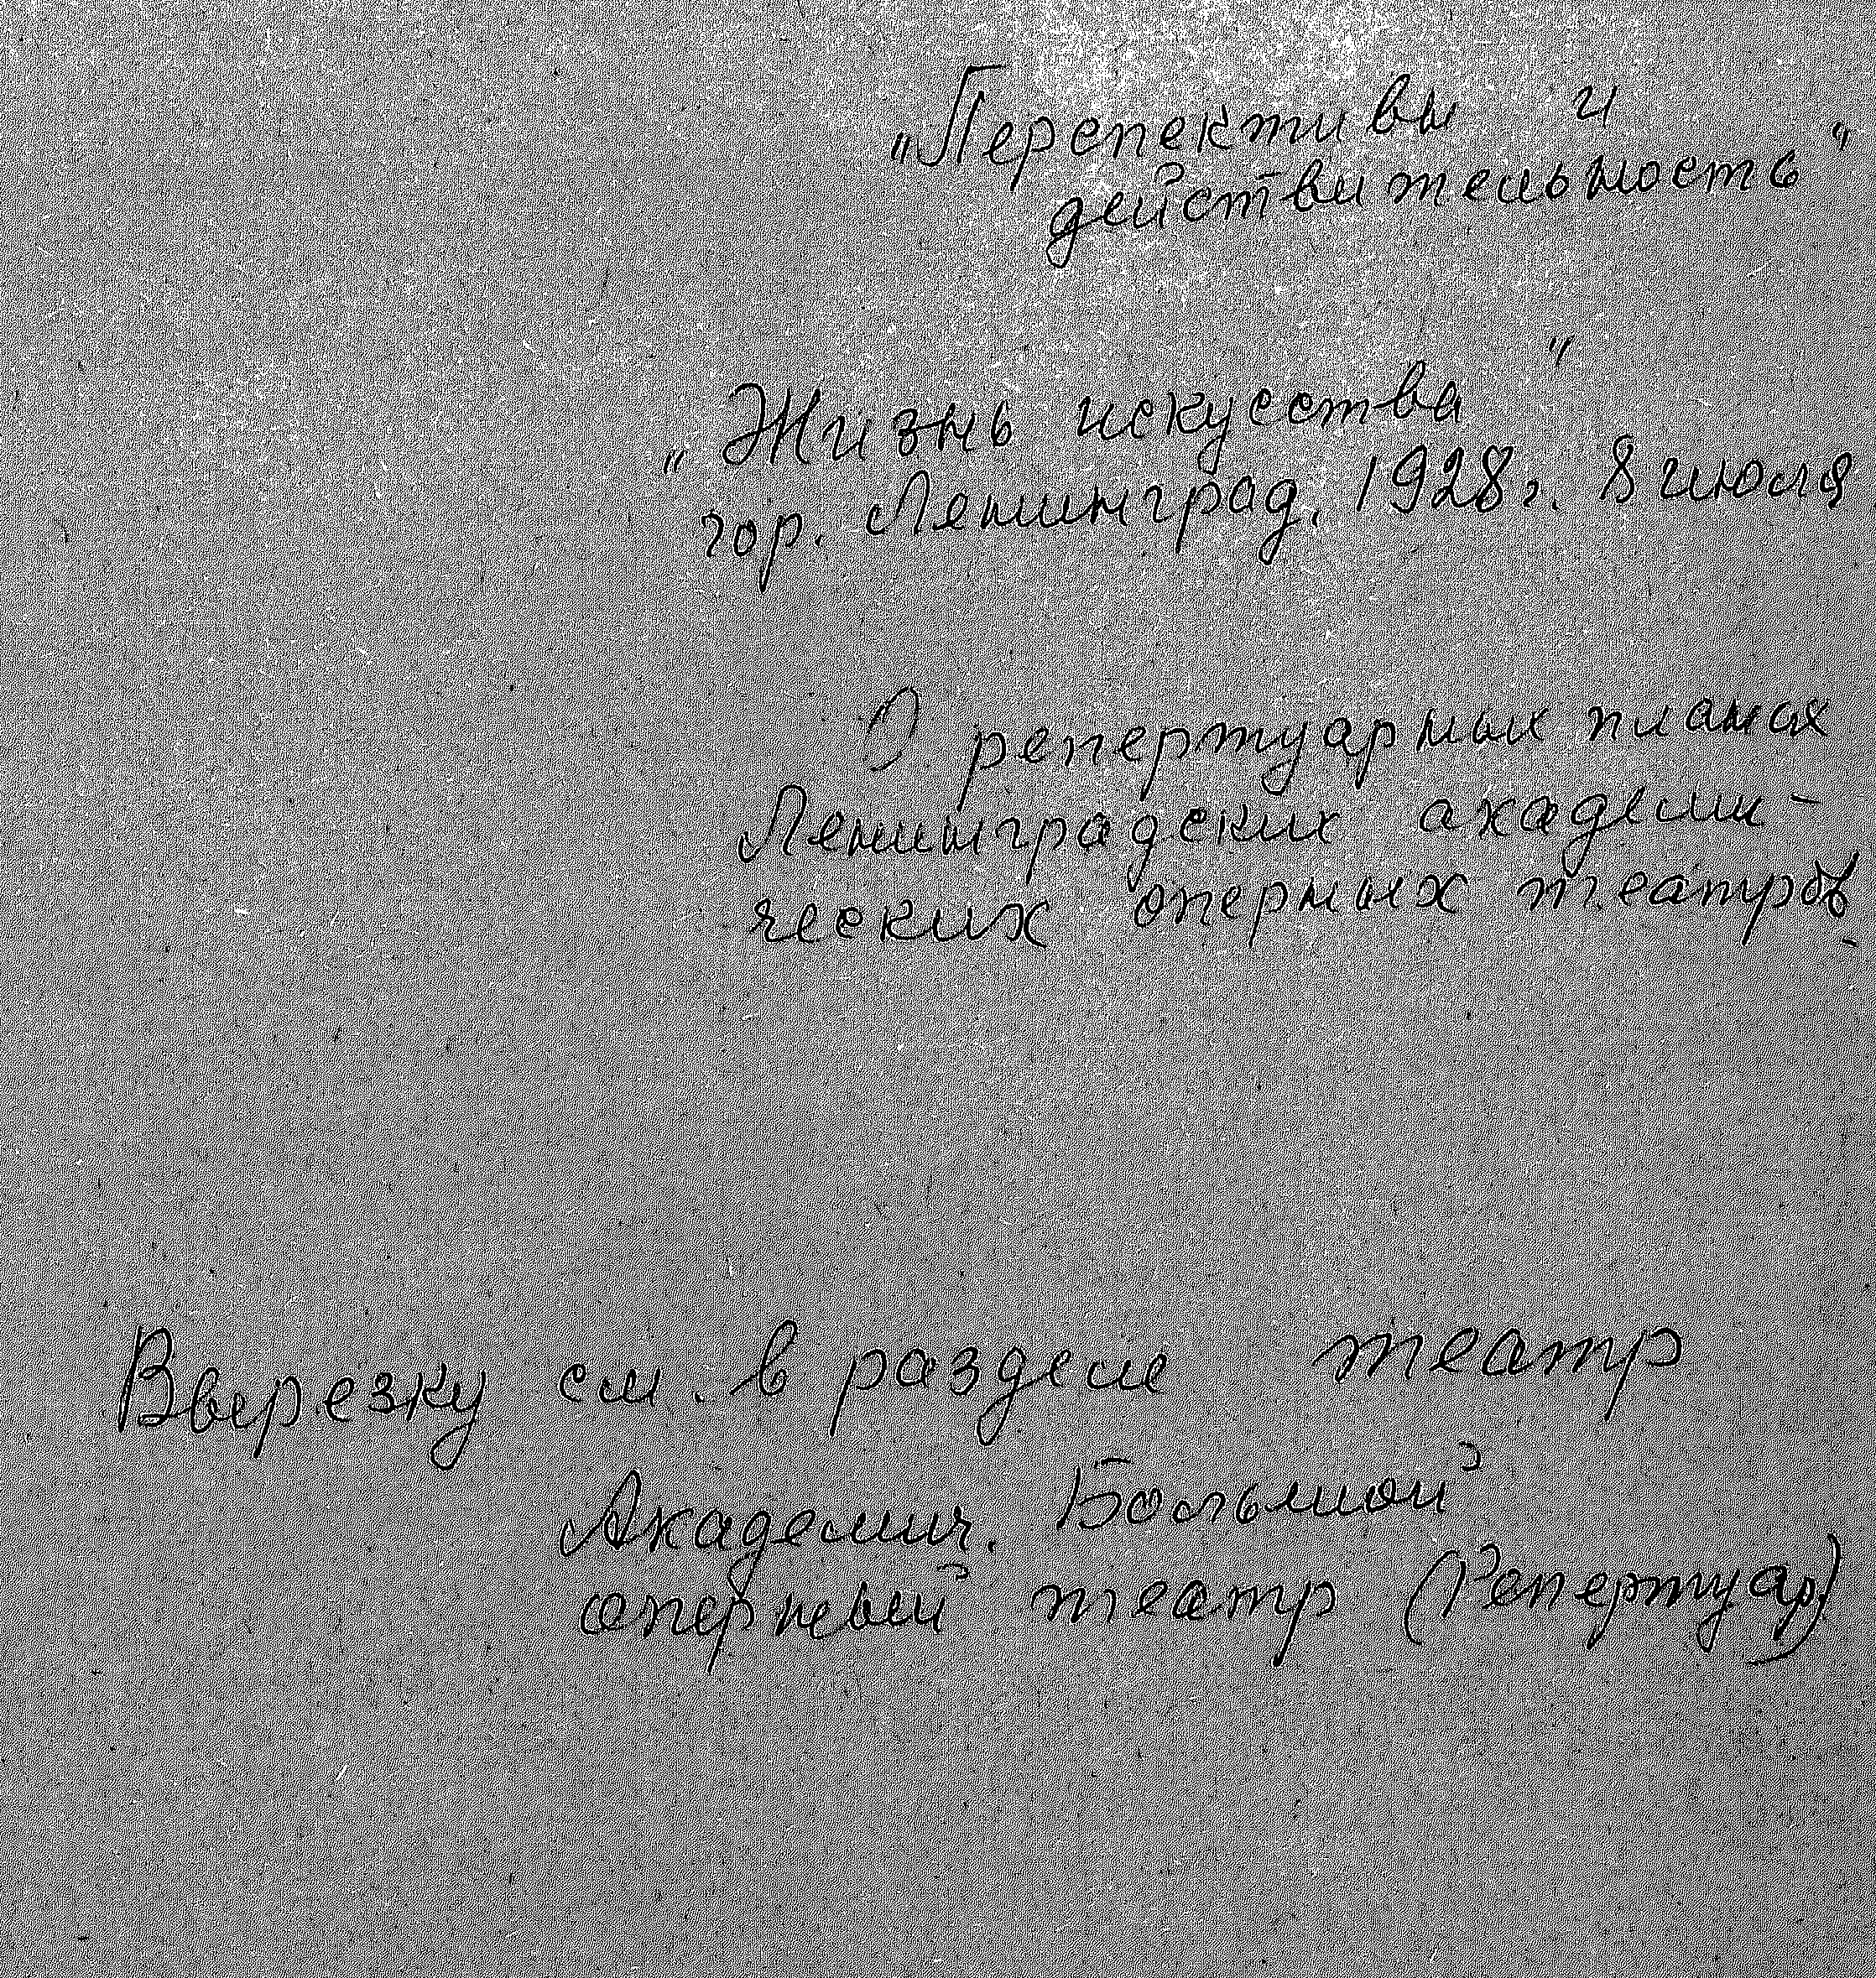 „Перспективы и
действительность"
„Жизнь искусства"
гор. Ленинград, 1928г. 8 июля
О репертуарных планах
Ленинградских академи-
ческих оперных театров.
Вырезку см. в разделе театр
Академич. Большой
оперный театр (Репертуар)